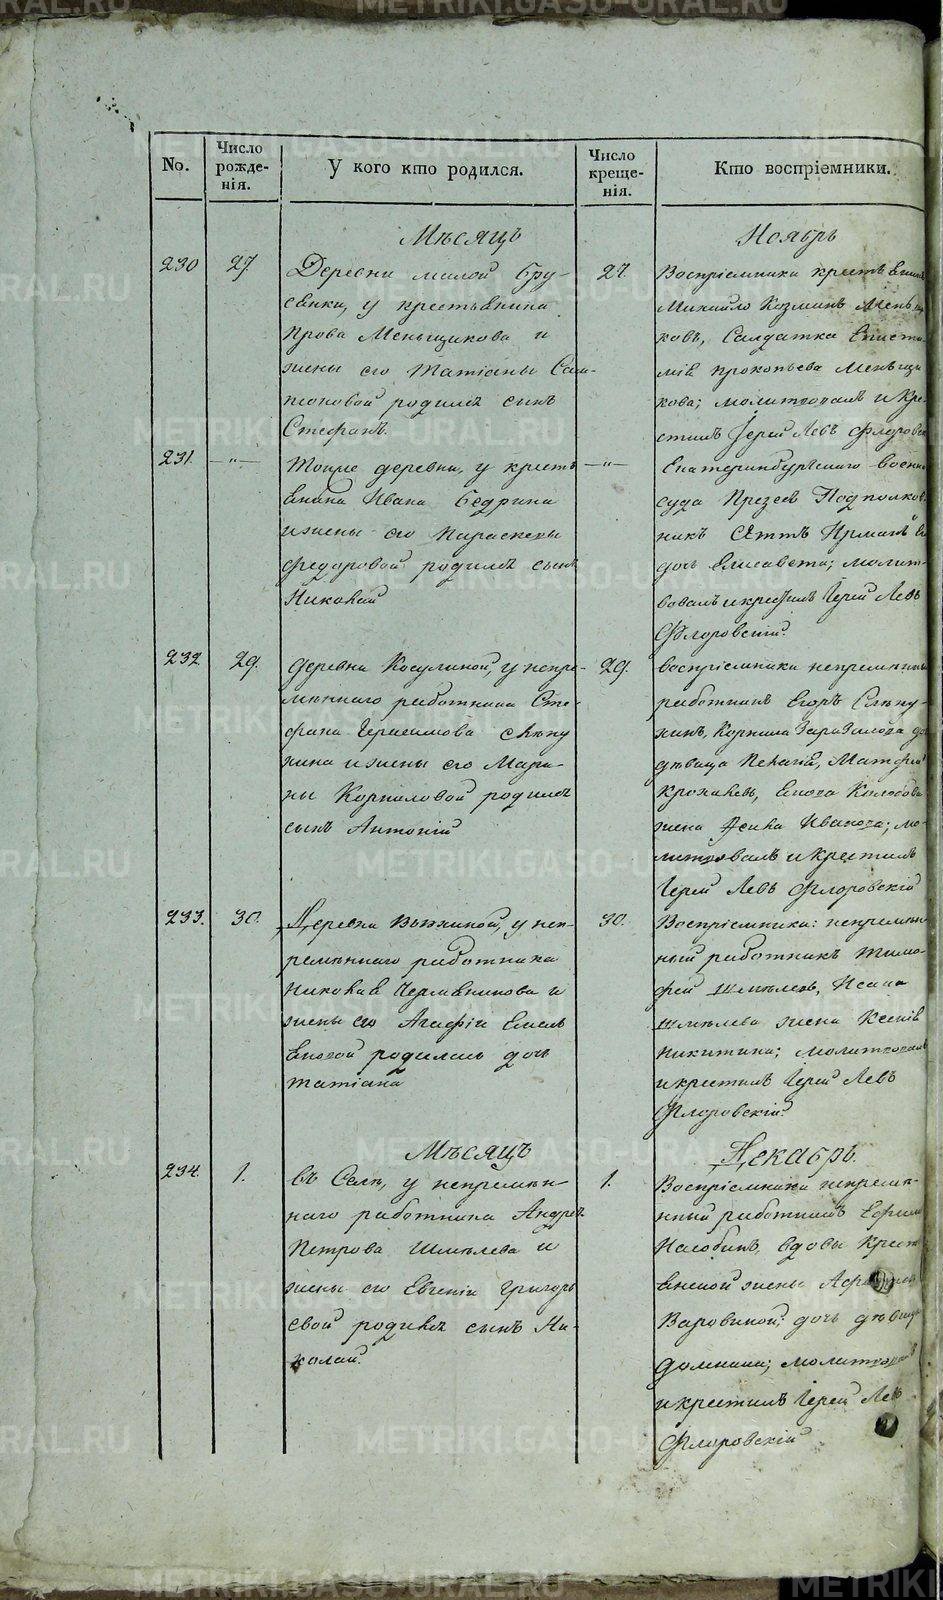 No.
Число рожде-
нія.
У кого кто родился.
Число креще-
нія.
Кто воспріемники.
Мѣсяцъ
Ноябрь
230
27.
Деревни малой Бру-
сянки, у крестьянина
Прова Меньщикова и
жены его Татіаны Сам-
псоновой родился сынъ
Стефанъ.
27.
Воспріемники крестьянинъ
Михайло Козминъ Меньщи-
ковъ, Салдатка Еписти-
мія Прокопьева Меньщи-
кова; молитвовалъ и Кре-
стилъ Іерей Левъ Флоровскій
231.
—"—
Тойже деревни, у кресть-
янина Ивана Бедрина
и жены его Параскевы
Федоровой родился сынъ
Николай
—"—
Екатеринбургскаго военнаго
суда Презесъ Подполков-
никъ
дочь Елисавета; молит-
вовалъ и крестилъ Іерей Левъ
Флоровскій.
232.
29.
деревни Косулиной, у непре-
мѣннаго работника Сте-
фана Герасимова Сѣпу-
хина и жены его Мари-
ны Корниловой родился
сынъ Антоній
29.
воспріемники непремѣнный
работникъ Егоръ
дѣвица Пелагія, Матфей
жена Ивановна; мо-
литвовалъ и крестилъ
Іерей Левъ Флоровскій
233.
30.
Деревни у неп-
ремѣннаго работника
Николая Чермянинова и
жены его Агафіи Емель-
яновой родилась дочь
Татіана
30.
Воспріемники: непремѣн-
ный работникъ Тимо-
фей Шмѣлевъ, Исака
Шмѣлева жена Ксенія
Никитина; молитвовалъ
и крестилъ Іерей Левъ
Флоровскій
Мѣсяцъ
Декабрь
234.
1.
въ Селѣ, у непремѣн-
наго работника Андрея
Петрова Шмѣлева и
жены его Евгеніи Григорь-
евой родился сынъ Ни-
колай.
1.
Воспріемники непремѣ-
нный работникъ Ефимъ
Насобинъ, вдовы Крест-
янской жены
Варовиной; дочь дѣвица
Домника; молитвовалъ
и крестилъ Іерей Левъ
Флоровскій
METRIKI.GASO-URAL.RU